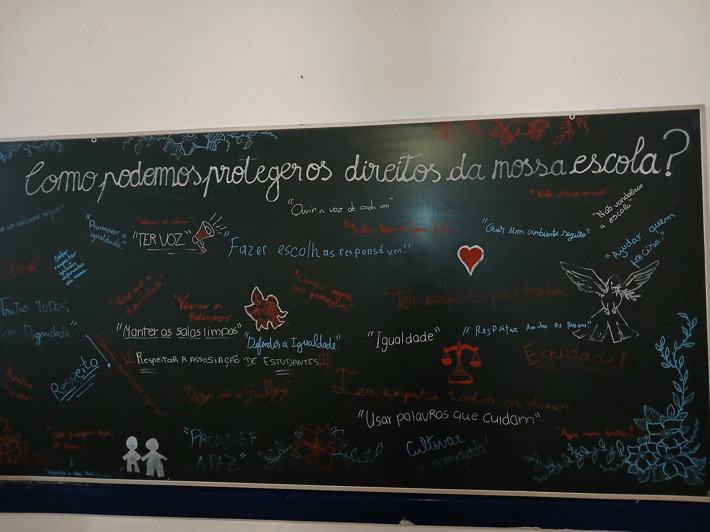 Como podemos proteger os direitos da nossa escola?
"Não discriminar"
"Ouvir a voz de cada um"
"Não vandalizar
a escola"
"Promover a
igualdade"
"TER VOZ"
"Criar um ambiente seguro"
"Fazer escolhas responsáveis!!"
"Ajudar quem
precisa"
Saber
respeitar
opiniões
diferentes
da nossa
Ter respeito por todos
Tratar todos
com Dignidade"
"Valorizar os
Professores"
"Manter as salas limpas"
"Defender a Igualdade"
"Igualdade"
"Respeitar todas as pessoas"
!!!RESPEITAR A ASSOSIAÇÃO DE ESTUDANTES!!!
Equidade!
Respeito!
"Diga não ao Bullying"
Ter empatia todos os dias
"Usar palavras que cuidam"
"PROMOVER
A PAZ"
Cultivar
a amizade!